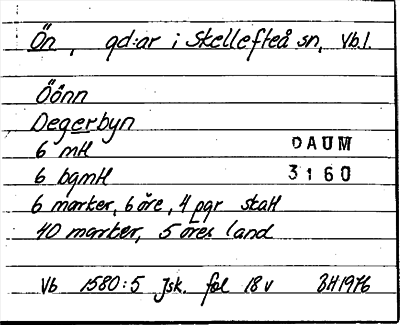 Ön, gd:ar i Skellefteå sn, Vb.l.
Öônn
Degerbyn
6 mtl
DAUM
6 bgmtl
3160
6 marker, 6 öre, 4 pgr skatt
40 marker, 5 öres land
Vb 1580:5 Jsk. fol 18 v BH1976